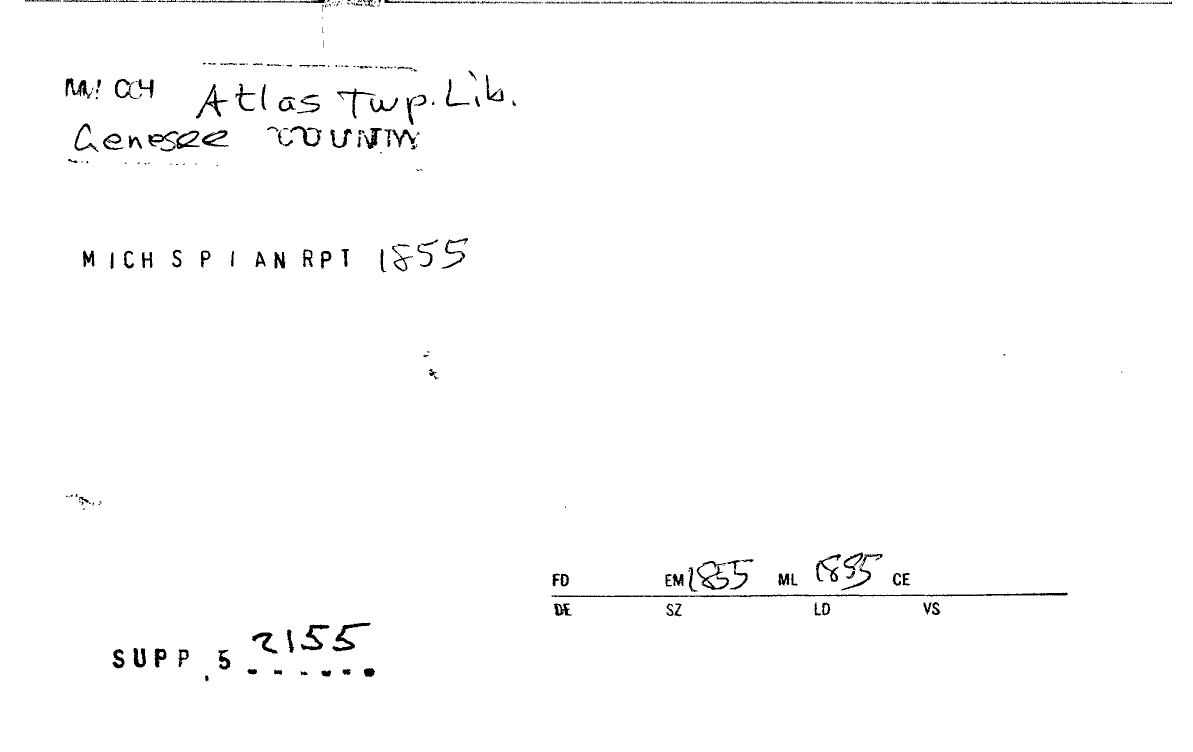 MICH Atlas Twp. Lib.
Genesee COUNTY
MICH S P I AN RPT 1855
FD EM 1855 ML 1855 CE
DE SZ LD VS
SUPP. 5 2155